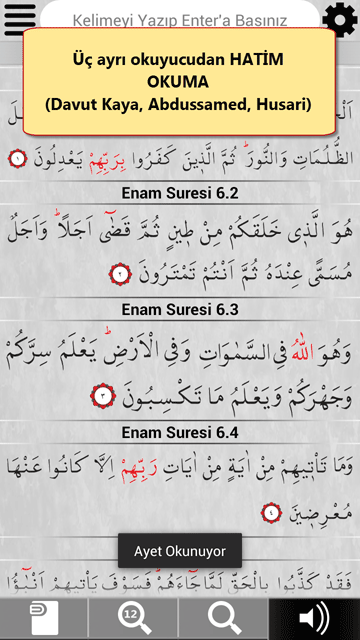 Kelimeyi Yazıp Enter'a Basınız
Üç ayrı okuyucudan HATİM
OKUMA
(Davut Kaya, Abdussamed, Husari)
الظُّلُمَاتِ وَالنُّورَ ثُمَّ الَّذٖينَ كَفَرُوا بِرَبِّهِمْ يَعْدِلُونَ ١
Enam Suresi 6.2
هُوَ الَّذٖى خَلَقَكُمْ مِنْ طٖينٍ ثُمَّ قَضٰٓى اَجَلًا وَاَجَلٌ
مُسَمًّى عِنْدَهُ ثُمَّ اَنْتُمْ تَمْتَرُونَ ٢
Enam Suresi 6.3
وَهُوَ اللّٰهُ فِى السَّمٰوَاتِ وَفِى الْاَرْضِ يَعْلَمُ سِرَّكُمْ
وَجَهْرَكُمْ وَيَعْلَمُ مَا تَكْسِبُونَ ٣
Enam Suresi 6.4
وَمَا تَاْتٖيهِمْ مِنْ اٰيَةٍ مِنْ اٰيَاتِ رَبِّهِمْ اِلَّا كَانُوا عَنْهَا
مُعْرِضٖينَ ٤
Ayet Okunuyor
فَقَدْ كَذَّبُوا بِالْحَقِّ لَمَّا جَٓاءَهُمْ فَسَوْفَ يَاْتٖيهِمْ اَنْبٰٓؤُا
12